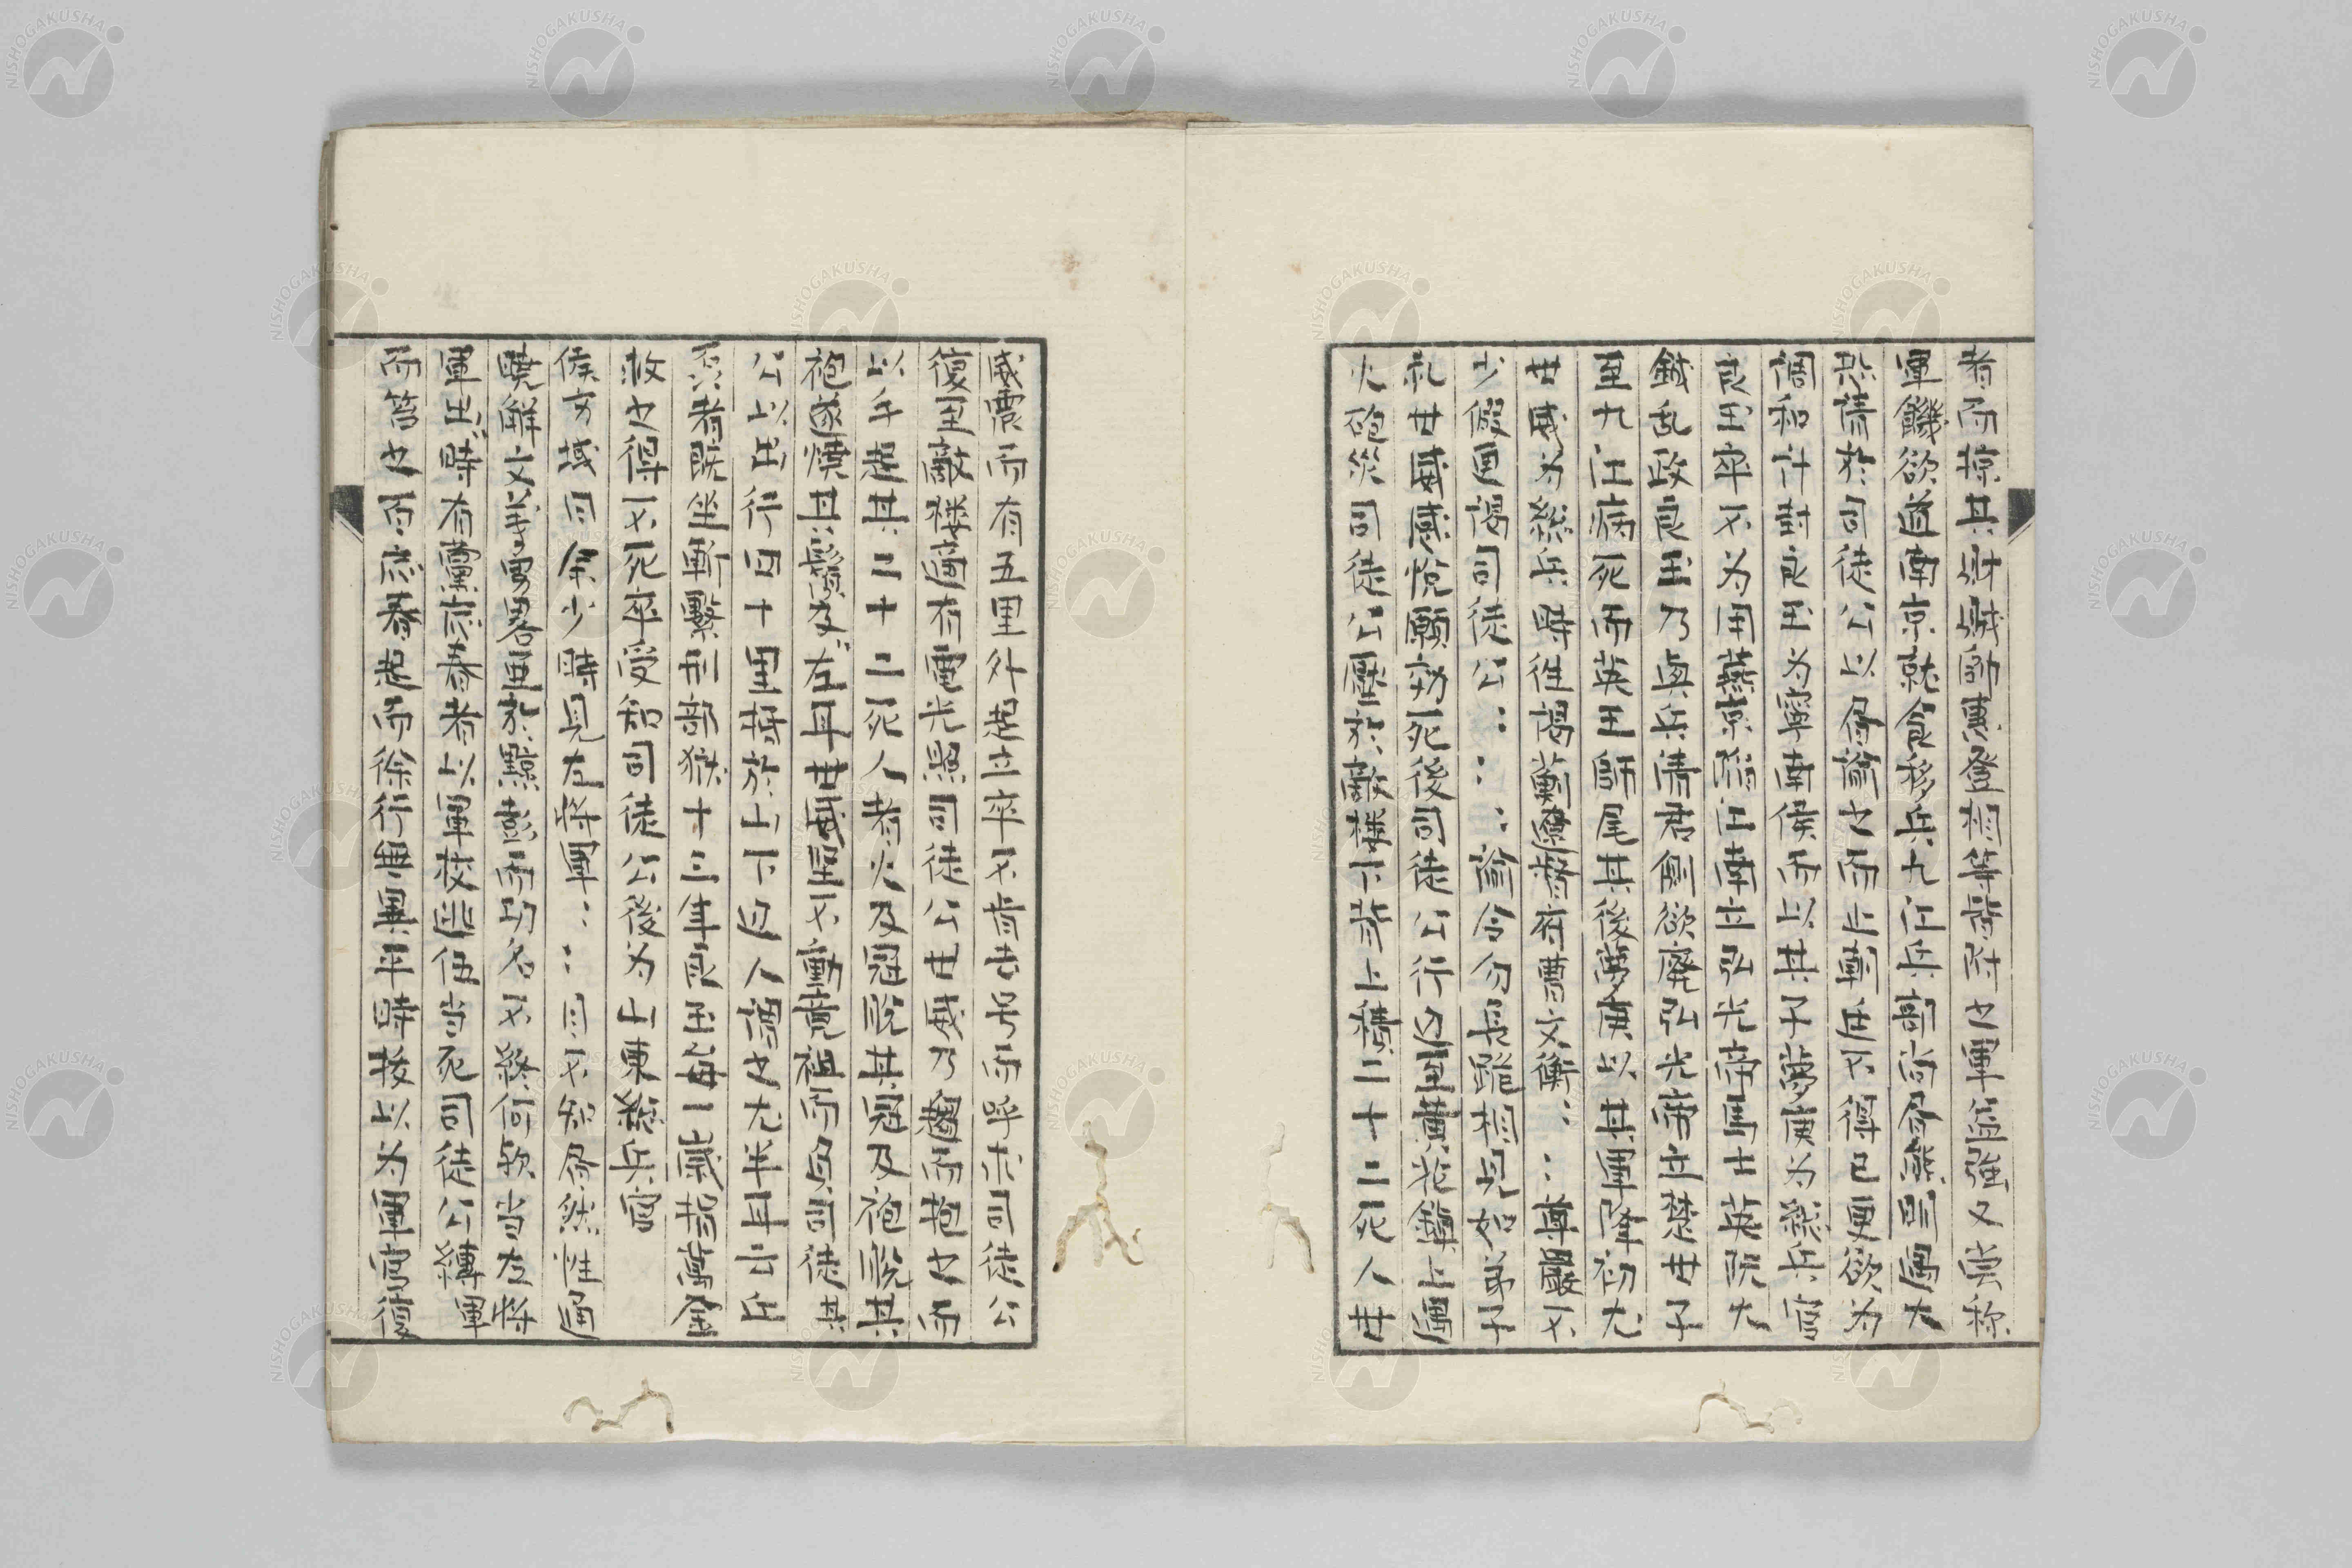 者而掠其財賊帥惠登相等皆附之軍益強又嘗称
軍饑欲道南京就食移兵九江兵部尚書熊明遇大
恐請於司徒公以書諭之而止朝廷不得已更欲為
調和計封良玉為寧南侯而以其子夢庚為総兵官
良玉卒不為用燕京陥江南立弘光帝馬士英阮大
鋮乱政良玉乃興兵清君側欲廃弘光帝立楚世子
至九江病死而英王師尾其後夢庚以其軍降初尤
世威為総兵時往謁薊遼督府曹文衡〻〻尊嚴不
少假更謁司徒公〻〻〻諭令勿長跪相見如弟子
礼世威感悦願効死後司徒公行辺至黄花鎮上逼
火砲災司徒公壓於敵楼下背上積二十二死人世
威震而有五里外起立卒不肯去号而呼求司徒公
復至敵楼適有電光照司徒公世威乃趨而抱之而
以手起其二十二死人者火及冠脱其冠及袍脱其
袍遂燎其鬚及左耳世威堅不動竟袒而負司徒其
公以出行四十里將於山下辺人謂之尤半耳云丘
磊者既坐斬繫刑部獄十三年良玉毎一歳捐萬金
救之得不死卒受知司徒公後為山東総兵官
侯方域曰余少時見左将軍〻〻曰不知書然性通
曉解文義勇畧亜於黥彭而功名不終何歟当左将
軍出時有黨恣春者以軍校逃伍当死司徒公縛軍
而笞之百恣春起而徐行無異平時拔以為軍官復